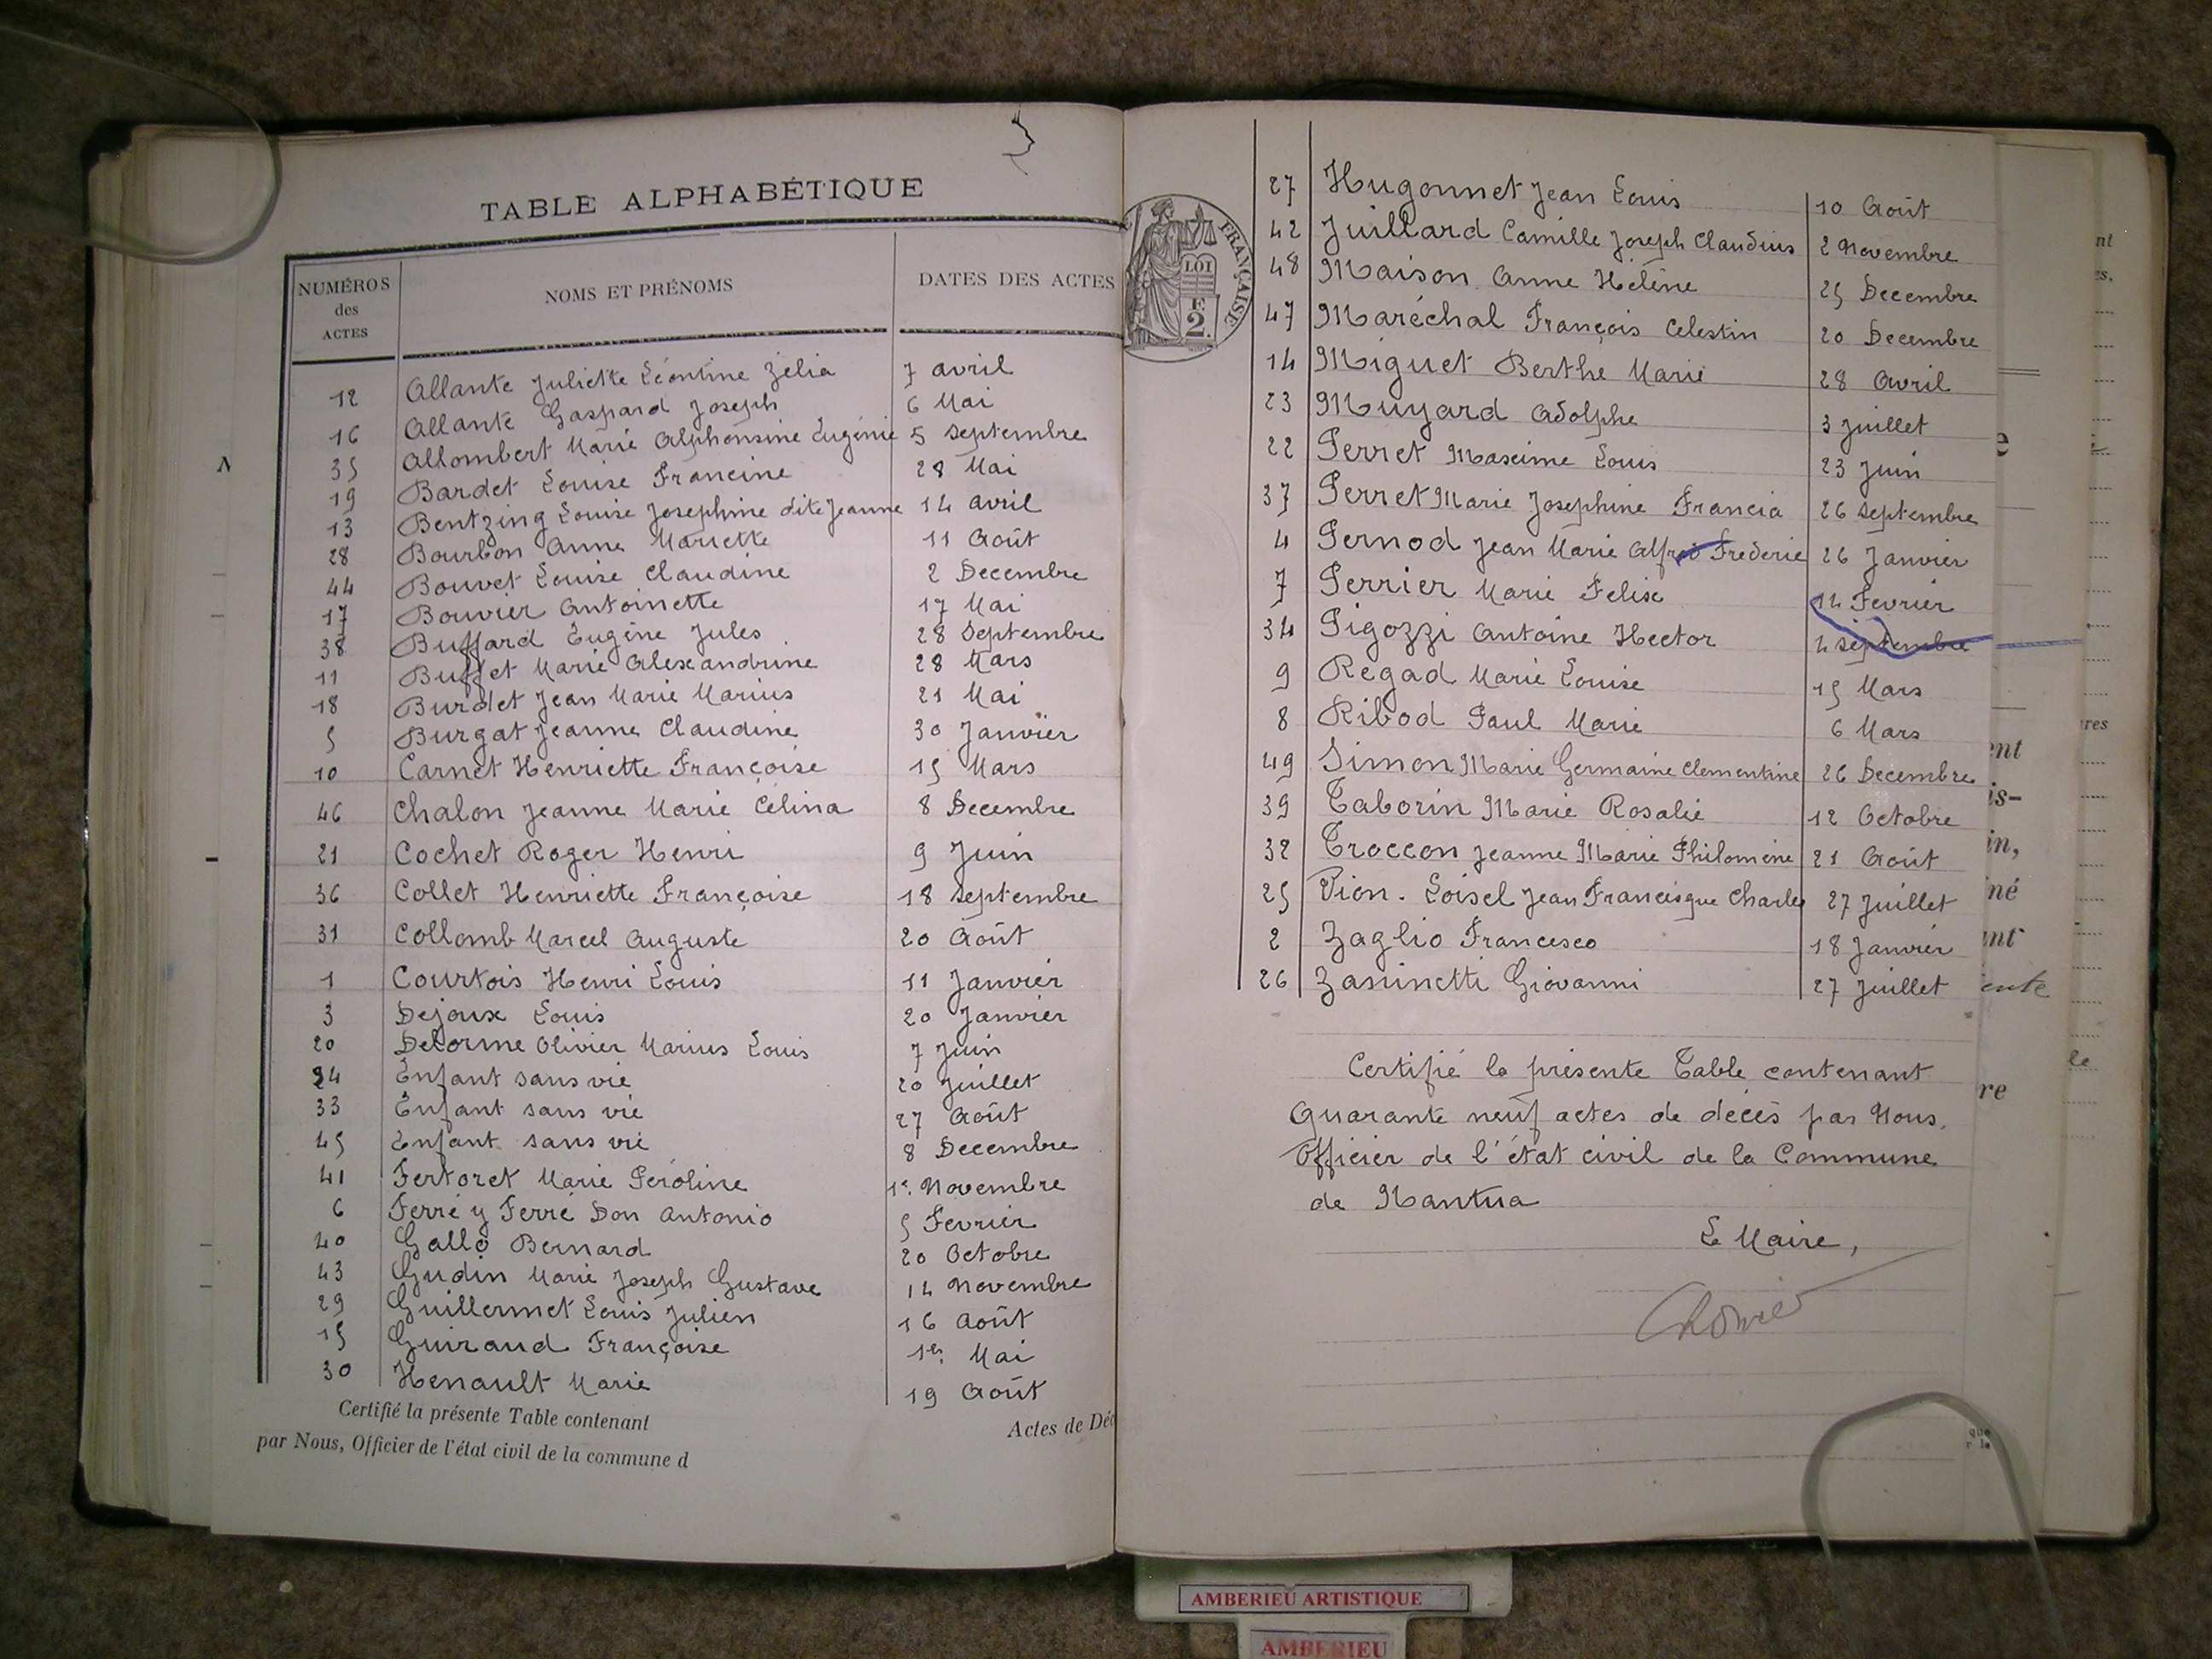 TABLE ALPHABÉTIQUE
NUMÉROS des ACTES NOMS ET PRÉNOMS DATES DES ACTES
12 Allante Juliette Léontine Zélia 7 avril
16 Allante Gaspard Joseph 6 Mai
35 Allombert Marie Alphonsine Eugénie 5 Septembre
19 Bardet Louise Francine 28 Mai
13 Bentzing Louise Josephine dite Jeanne 14 avril
28 Bourbon Anne Mariette 11 Août
44 Bouvet Louise Claudine 2 Decembre
17 Bouvier Antoinette 17 Mai
38 Buffard Eugène Jules 28 Septembre
11 Buffet Marie Alexandrine 28 Mars
18 Burdet Jean Marie Marius 21 Mai
5 Burgat Jeanne Claudine 30 Janvier
10 Carnet Henriette Françoise 15 Mars
46 Chalon Jeanne Marie Célina 8 Decembre
21 Cochet Roger Henri 9 Juin
36 Collet Henriette Françoise 18 Septembre
31 Collomb Marcel Auguste 20 Août
1 Courtois Henri Louis 11 Janvier
3 Dejoux Louis 20 Janvier
20 Delorme Olivier Marius Louis 7 Juin
24 Enfant sans vie 20 Juillet
33 Enfant sans vie 27 Août
45 Enfant sans vie 8 Decembre
41 Fertoret Marie Péroline 1er Novembre
6 Ferré y Ferré Don Antonio 5 Fevrier
40 Gallo Bernard 20 Octobre
43 Gudin Marie Joseph Gustave 14 Novembre
29 Guillermet Louis Julien 16 Août
15 Guiraud Françoise 1er Mai
30 Henault Marie 19 Août
Certifié la présente Table contenant Actes de Déc
par Nous, Officier de l'état civil de la commune d
FRANÇAISE
LOI
2
27 Hugonnet Jean Louis 10 Août
42 Juillard Camille Joseph Claudius 2 Novembre
48 Maison Anne Hélène 25 Decembre
47 Maréchal François Celestin 20 Decembre
14 Miguet Berthe Marie 28 Avril
23 Muyard Adolphe 3 Juillet
22 Perret Maxime Louis 23 Juin
37 Perret Marie Josephine Francia 26 Septembre
4 Pernod Jean Marie Alfred Frederic 26 Janvier
7 Perrier Marie Felix 14 Fevrier
34 Pigozzi Antoine Hector 4 Septembre
9 Regad Marie Louise 15 Mars
8 Ribod Paul Marie 6 Mars
49 Simon Marie Germaine Clementine 26 Decembre
39 Taborin Marie Rosalie 12 Octobre
32 Troccon Jeanne Marie Philomène 21 Août
25 Vion-Loisel Jean Francisque Charles 27 Juillet
2 Zaglio Francesco 18 Janvier
26 Zaninetti Giovanni 27 Juillet
Certifié la présente Table contenant
Quarante neuf actes de décès par Nous,
Officier de l'état civil de la Commune
de Nantua
Le Maire,
AMBERIEU ARTISTIQUE
AMBERIEU